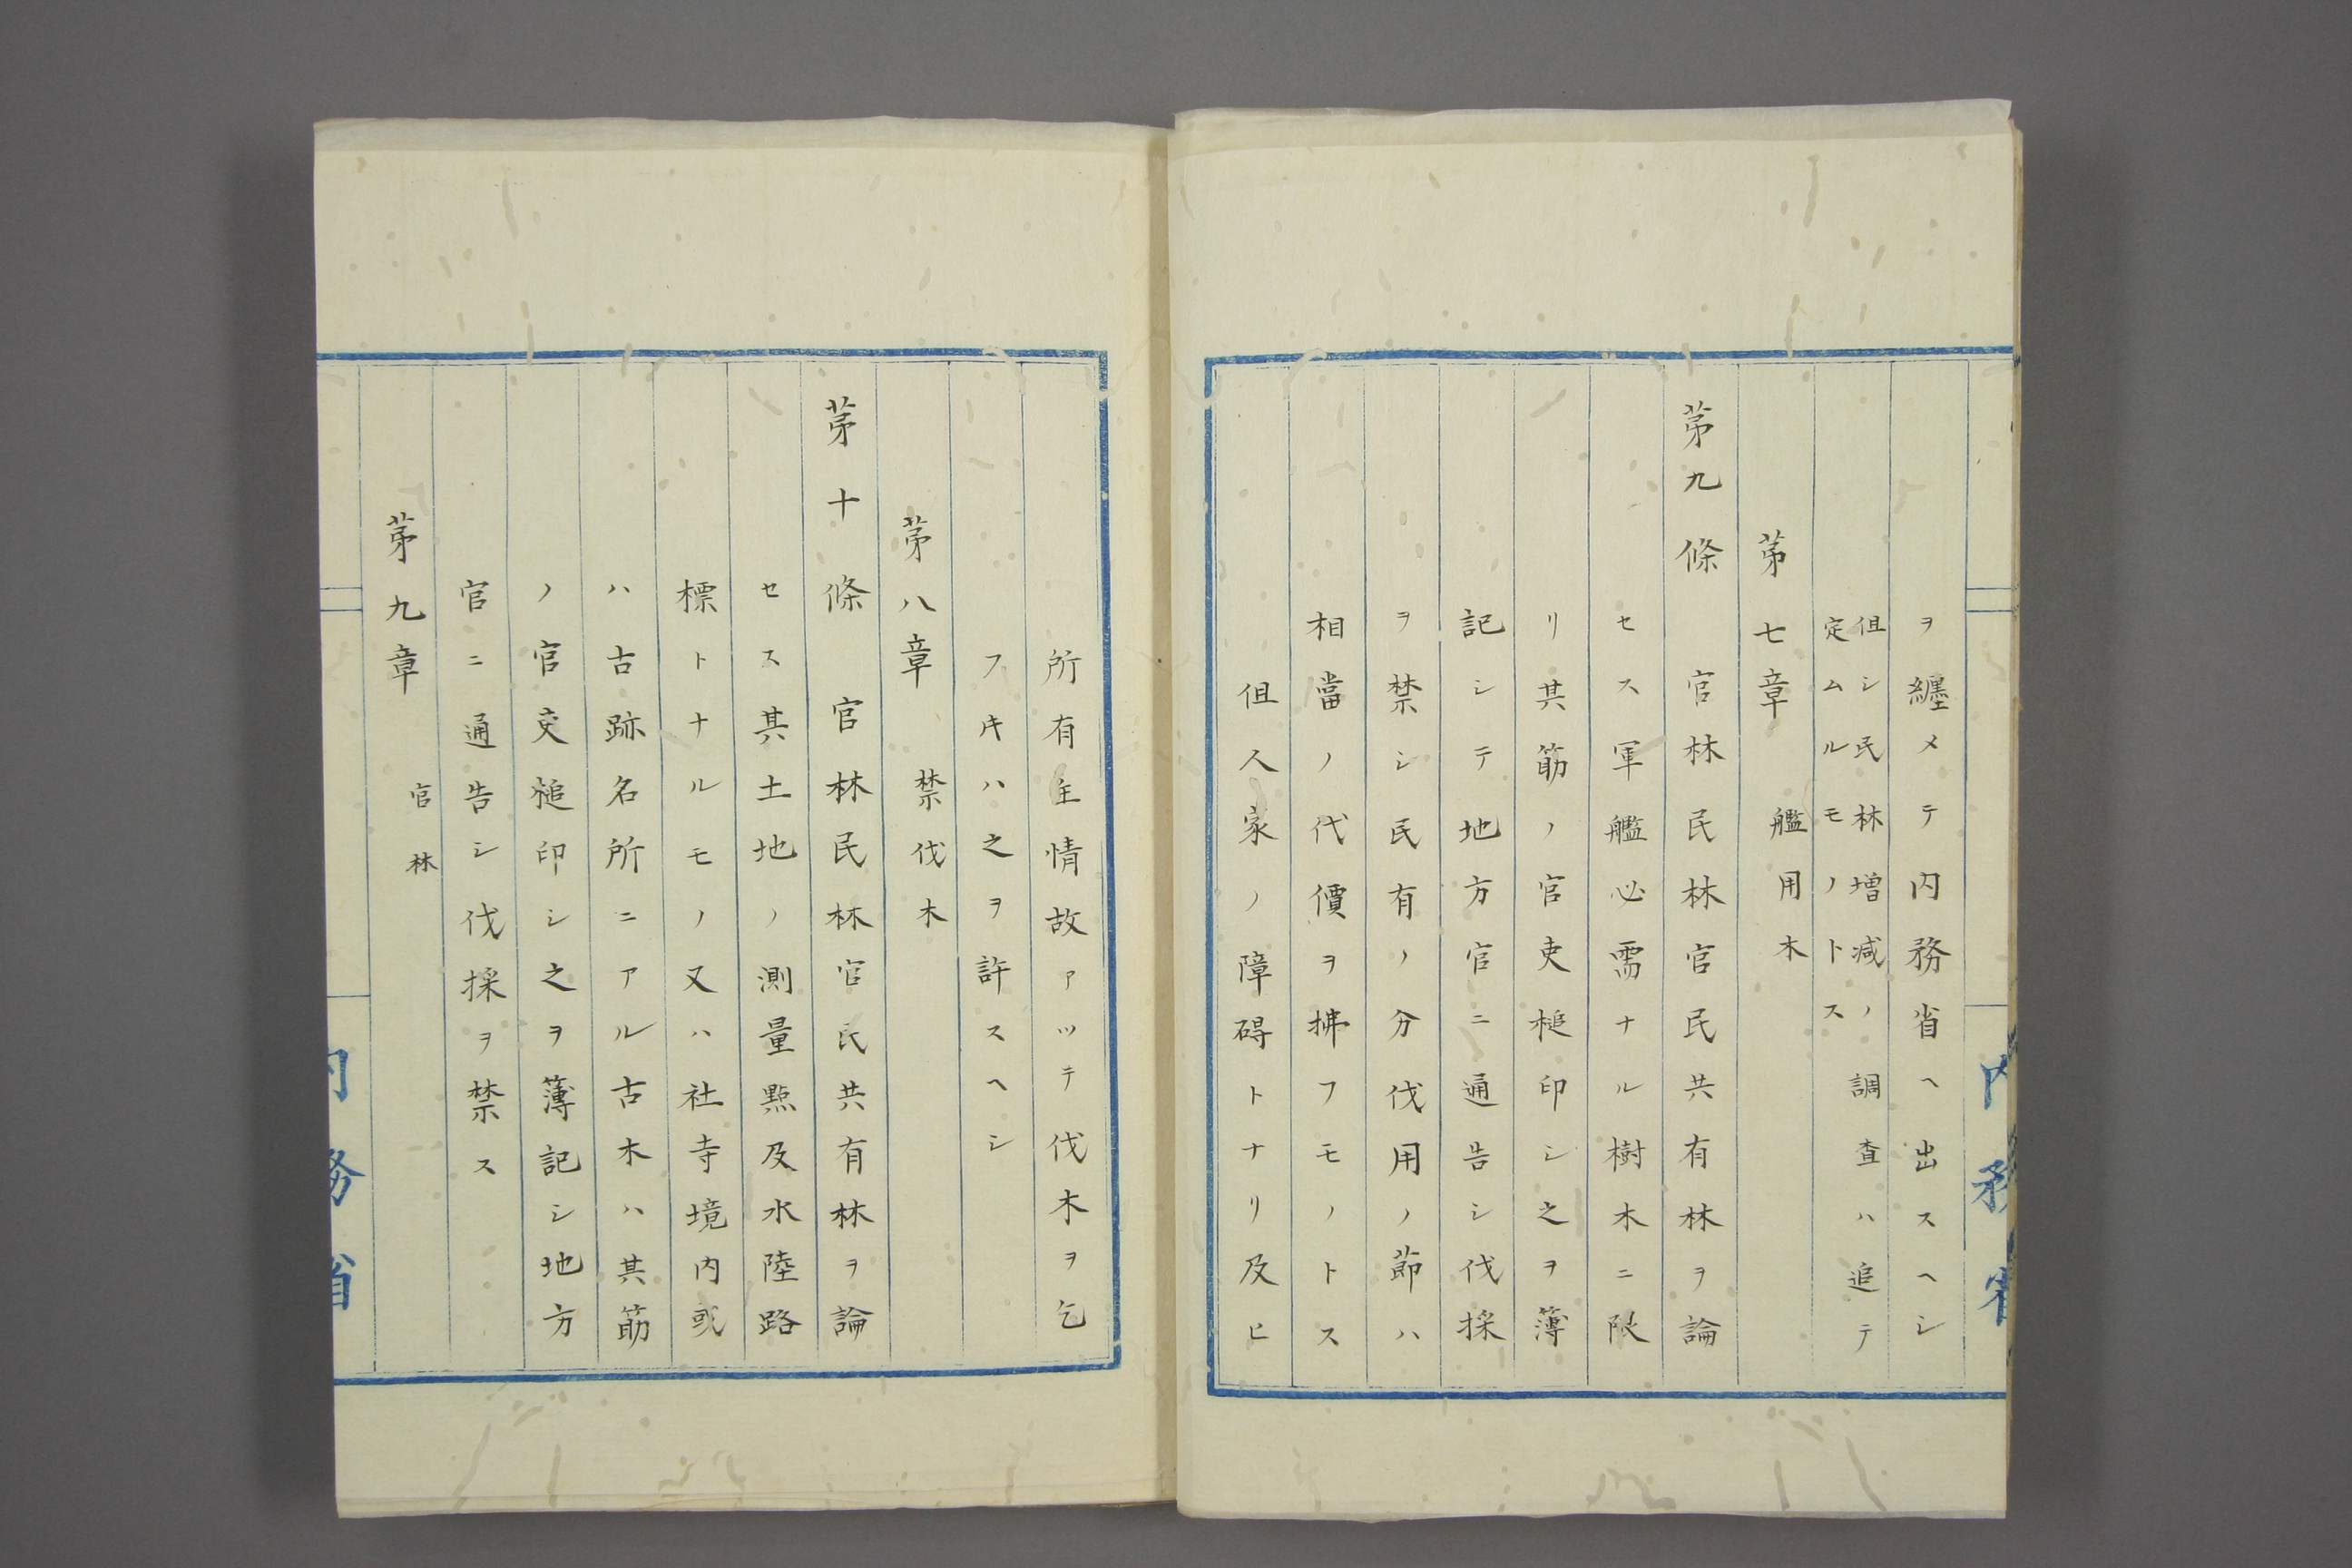 ヲ纏メテ内務省ヘ出スヘシ
但シ民林増减ノ調查ハ追テ
定ムルモノトス
苐七章　艦用木
苐九條　官林民林官民共有林ヲ論
セス軍艦必需ナル樹木ニ限
リ其筋ノ官吏槌印シ之ヲ簿
記シテ地方官ニ通告シ伐採
ヲ禁シ民有ノ分伐用ノ節ハ
相當ノ代價ヲ拂フモノトス
但人家ノ障碍トナリ及ヒ
内務省
所有主情故アツテ伐木ヲ乞
フ𪜈ハ之ヲ許スヘシ
苐八章　禁伐木
苐十條　官林民林官民共有林ヲ論
セス其土地ノ測量㸃及水陸路
標トナルモノ又ハ社寺境内或
ハ古跡名所ニアル古木ハ其筋
ノ官吏槌印シ之ヲ簿記シ地方
官ニ通告シ伐採ヲ禁ス
苐九章　官林
内務省